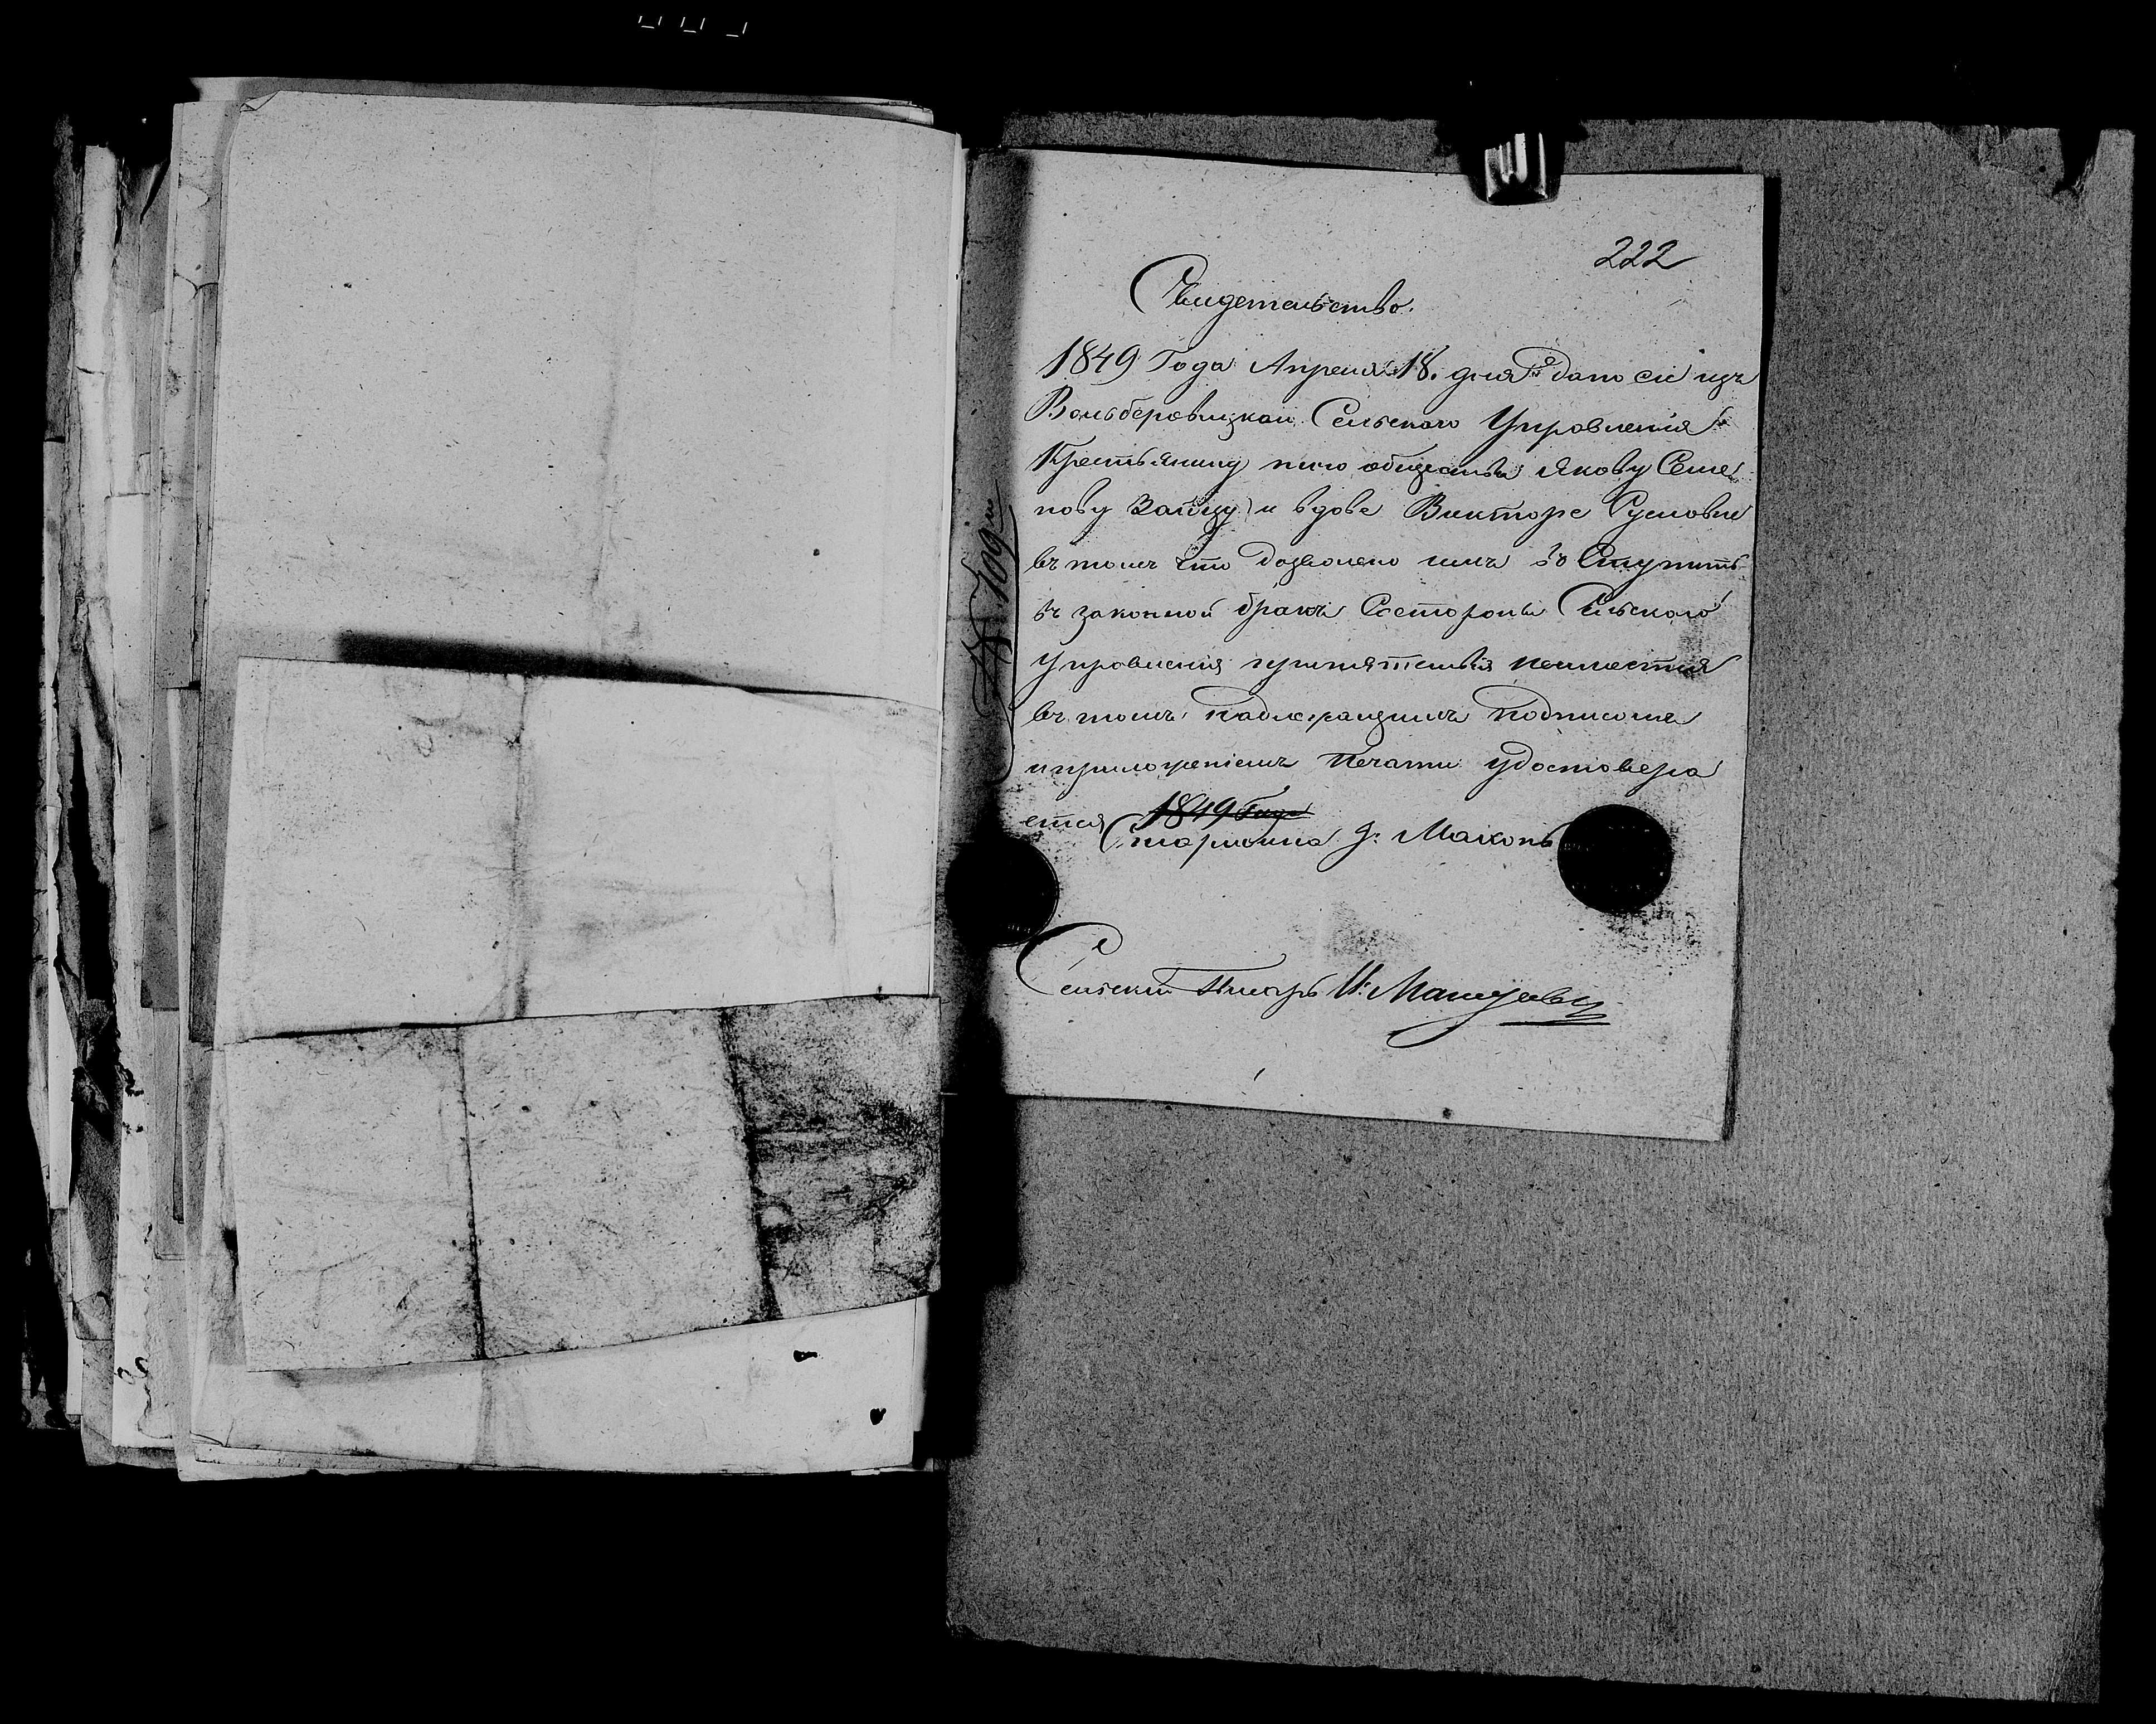 222
Свидетельство.
1849 Года Апреля 18. дня дано сие изъ
Вольберовицкаи Сельского Управления
Крестьянину того общества Якову Семе
нову Зайцу и вдове Викторе
въ томъ што дозволено имъ во Ступить
въ законной бракъ Состороны Сельского
Управления препятствия неимеется
въ томъ надлежащимъ подписомъ
и приложениемъ печати удостоверя
ется 1849 Года
Старшина
Сельский Писарь И.
№ 109